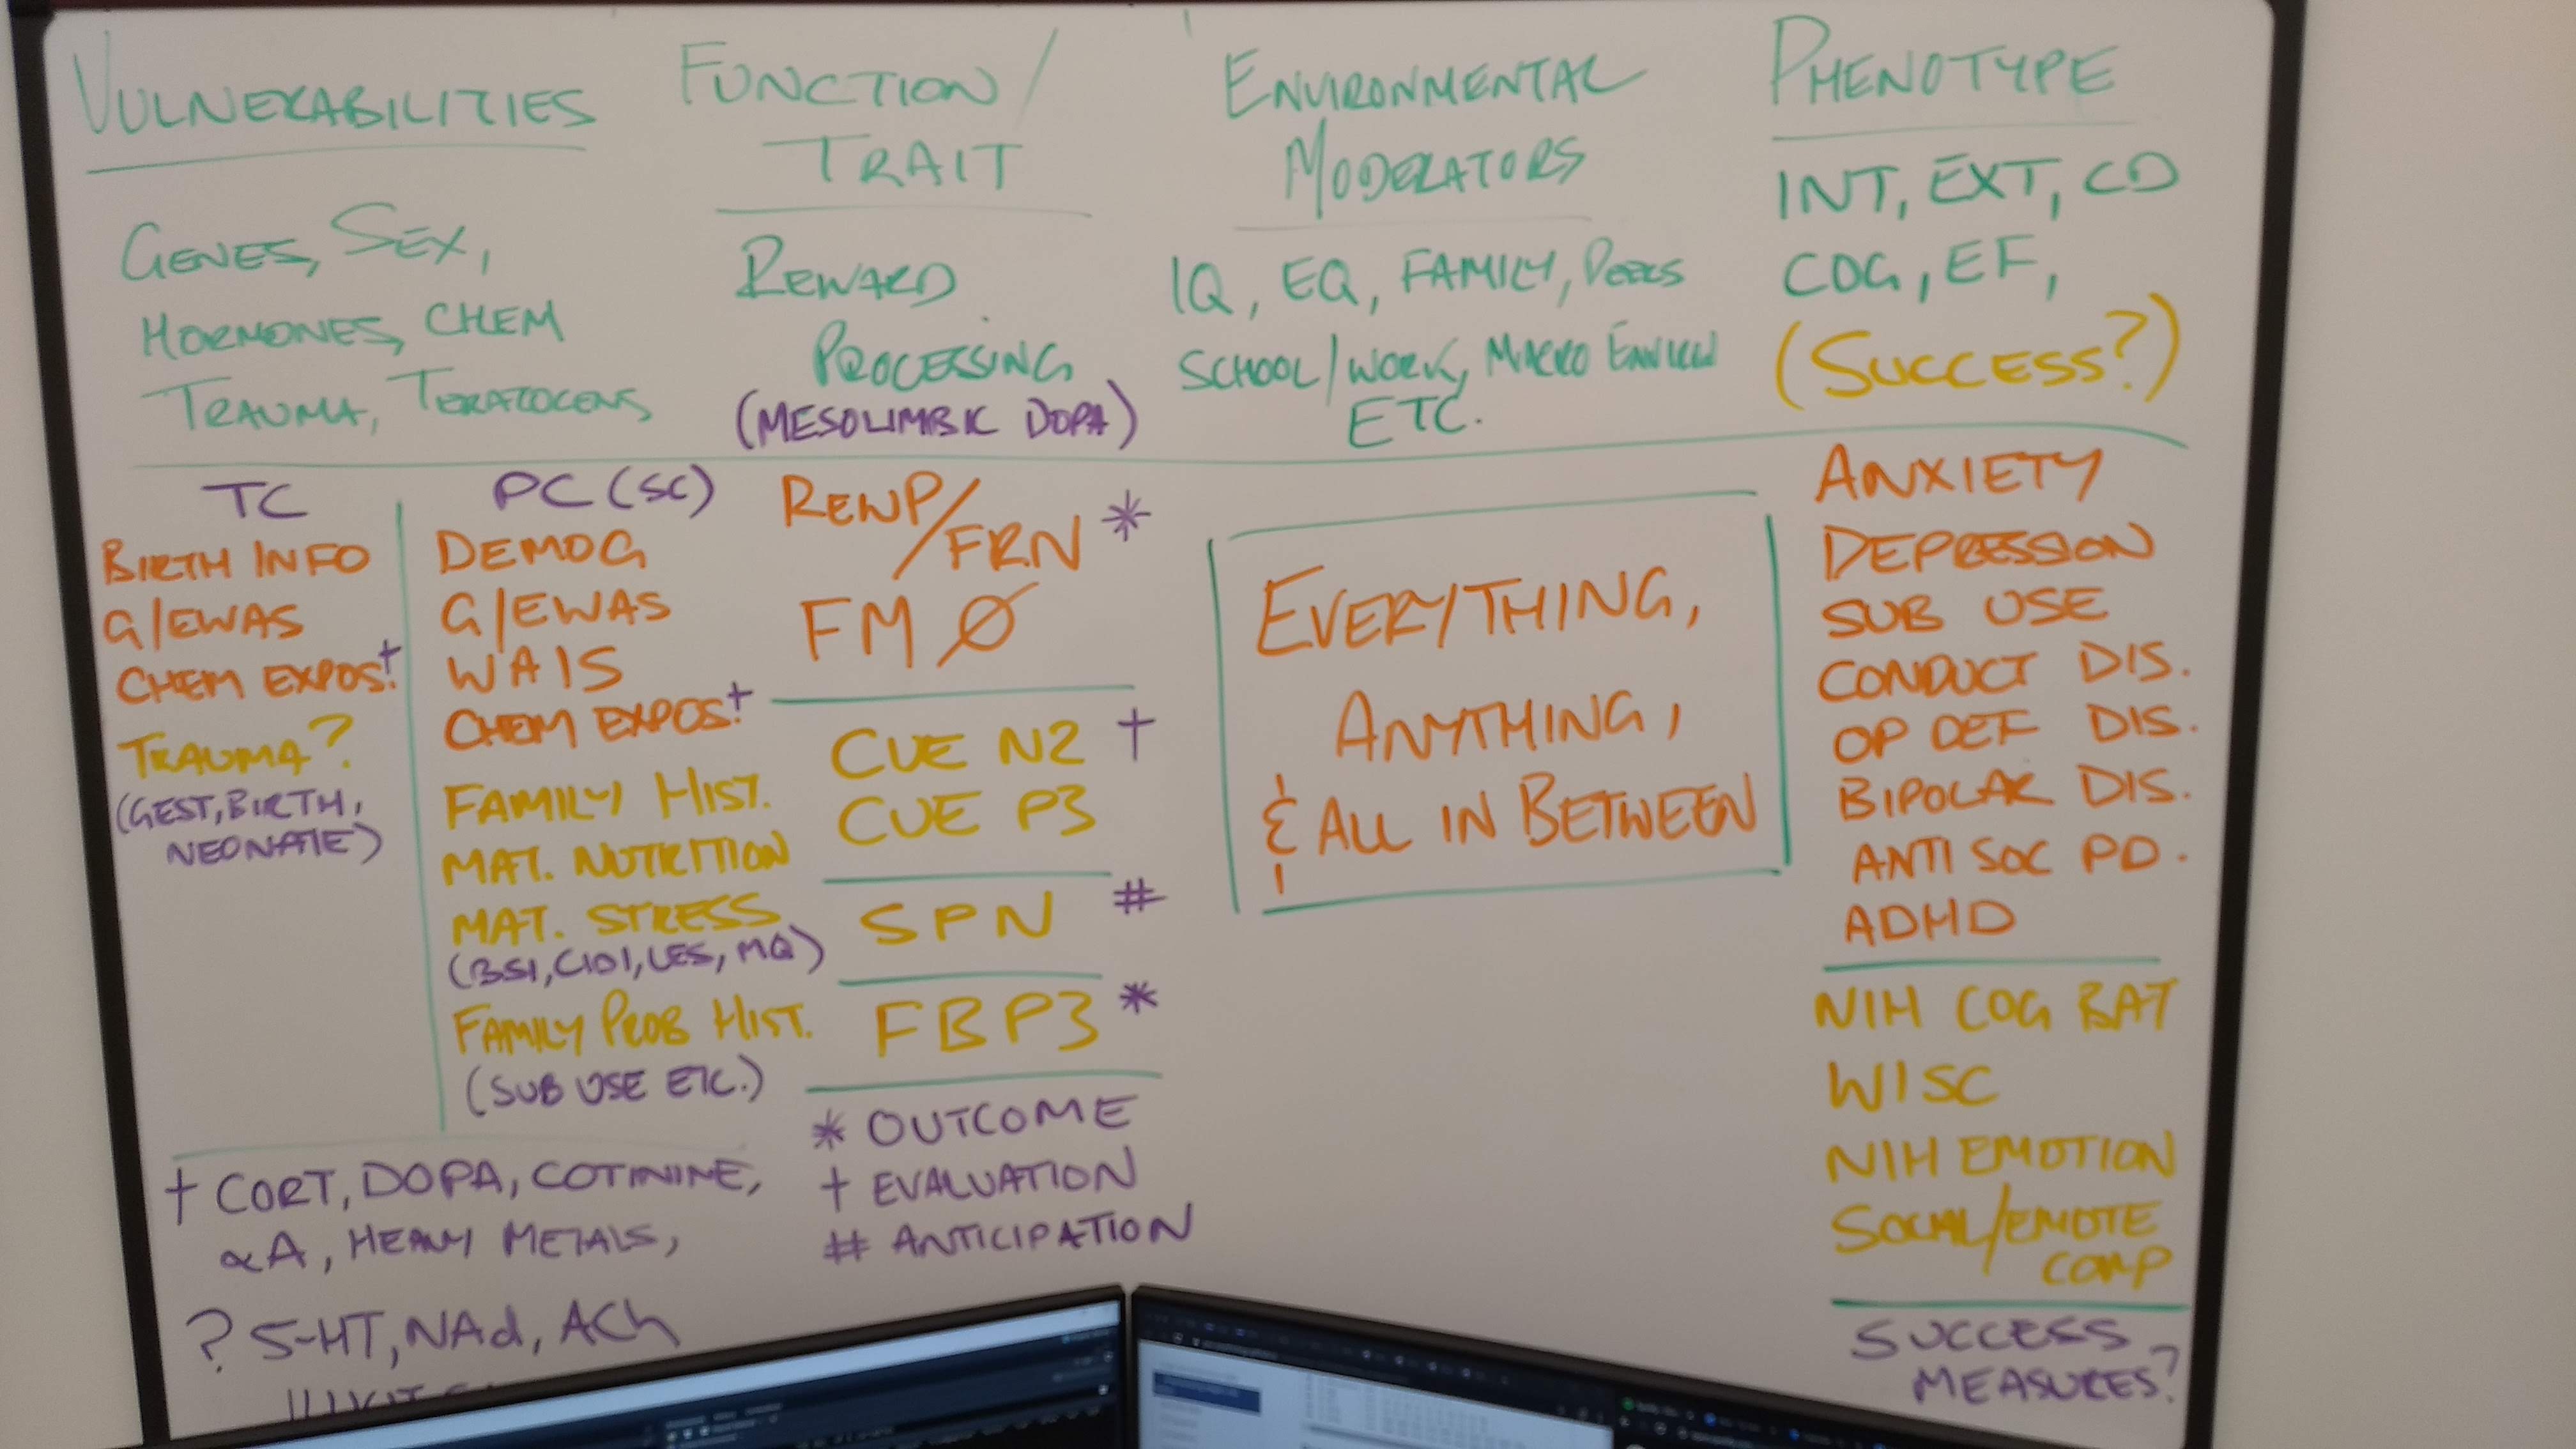 VULNERABILITIES
GENES, SEX,
HORMONES, CHEM
TRAUMA, TERATOGENS
FUNCTION/
TRAIT
REWARD
PROCESSING
(MESOLIMBIC DOPA)
ENVIRONMENTAL
MODERATORS
IQ, EQ, FAMILY, PEERS
SCHOOL/WORK, MACRO
ETC.
PHENOTYPE
INT, EXT, CD
COG, EF,
(SUCCESS?)
TC
BIRTH INFO
G/EWAS
CHEM EXPOS.†
TRAUMA?
(GEST, BIRTH,
NEONATE)
PC (SC)
DEMOG
G/EWAS
WAIS
CHEM EXPOS.†
FAMILY HIST.
MAT. NUTRITION
MAT. STRESS
(BSI, CIDI, LES, MQ)
FAMILY PROB HIST.
(SUB USE ETC.)
† CORT, DOPA, COTININE,
αA, HEAVY METALS,
? 5-HT, NAd, ACh
REWP/
FRN *
FM Ø
CUE N2 †
CUE P3
SPN #
FBP3 *
* OUTCOME
† EVALUATION
# ANTICIPATION
EVERYTHING,
ANYTHING,
& ALL IN BETWEEN
ANXIETY
DEPRESSION
SUB USE
CONDUCT DIS.
OP DEF DIS.
BIPOLAR DIS.
ANTI SOC PD.
ADHD
NIH COG BAT
WISC
NIH EMOTION
SOCIAL/EMOTE
COMP
SUCCESS
MEASURES?